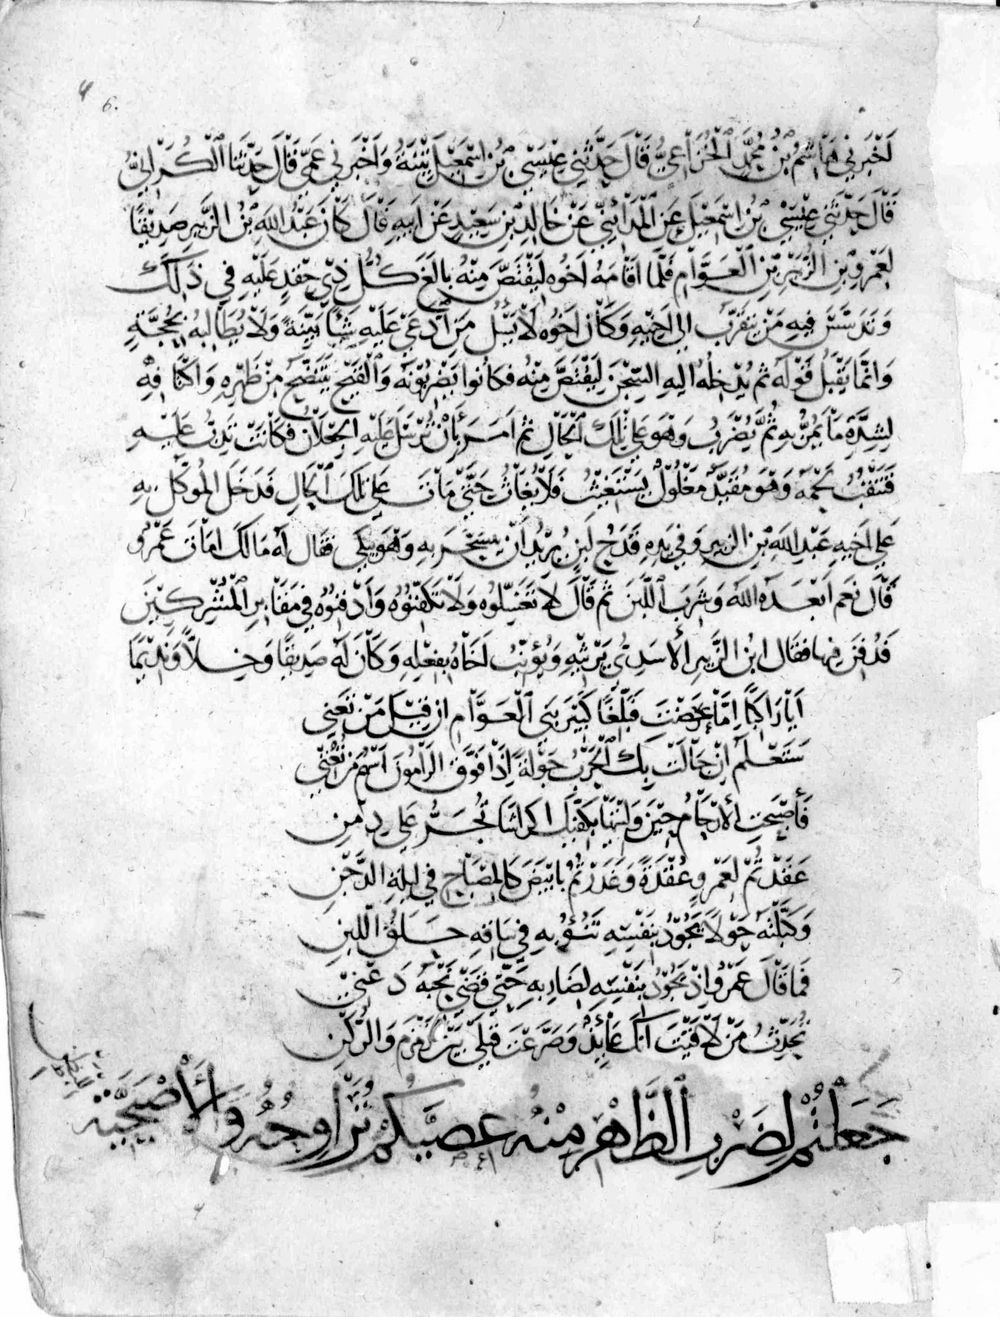 أَخْبَرَنِي هَاشِمُ بْنُ مُحَمَّدٍ الْخُزَاعِيُّ قَالَ حَدَّثَنِي عِيسَى بْنُ إِسْمَعِيلَ بَيْنَهُ وَأَخْبَرَنِي عَمِّي قَالَ حَدَّثَنَا الْكُرَانِيُّ
قَالَ حَدَّثَنِي عِيسَى بْنُ إِسْمَعِيلَ عَنِ الْمَدَائِنِيِّ عَنْ خَالِدِ بْنِ سَعِيدٍ عَنْ أَبِيهِ قَالَ كَانَ عَبْدُ اللهِ بْنُ الزَّبِيرِ صَدِيقًا
لِعَمْرِو بْنِ الزُّبَيْرِ بْنِ الْعَوَّامِ فَلَمَّا أَقَامَهُ أَخُوهُ لِيُقْتَصَّ مِنْهُ بَالَغَ كُلُّ ذِي حِقْدٍ عَلَيْهِ فِي ذَلِكَ
وَتَدَسَّسَ فِيهِ مَنْ يَتَقَرَّبُ إِلَى أَخِيهِ وَكَانَ أَخُوهُ لَا يَسْئَلُ مَنِ ادَّعَى عَلَيْهِ شَيْئًا بَيِّنَةً وَلَا يُطَالِبُهُ بِحُجَّةٍ
وَإِنَّمَا يَقْبَلُ قَوْلَهُ ثُمَّ يُدْخِلُهُ إِلَيْهِ السِّجْنَ لِيَقْتَصَّ مِنْهُ فَكَانُوا يَضْرِبُونَهُ وَالْقَيْحُ يَنْتَضِحُ مِنْ ظَهْرِهِ وَأَكْتَافِهِ
لِشِدَّةِ مَا يَمُرُّ بِهِ ثُمَّ يُضْرَبُ وَهُوَ عَلَى تِلْكَ الْحَالِ ثُمَّ أَمَرَ بِأَنْ تُرْسَلَ عَلَيْهِ الْجِعْلَانُ فَكَانَتْ تَدِبُّ عَلَيْهِ
فَتَثْقُبُ لَحْمَهُ وَهُوَ مُقَيَّدٌ مَغْلُولٌ يَسْتَغِيثُ فَلَا يُغَاثُ حَتَّى مَاتَ عَلَى تِلْكَ الْحَالِ فَدَخَلَ الْمُوَكَّلُ بِهِ
عَلَى أَخِيهِ عَبْدِ اللهِ بْنِ الزُّبَيْرِ وَفِي يَدِهِ قَدَحُ لَبَنٍ يُرِيدُ أَنْ يَتَسَحَّرَ بِهِ وَهُوَ يَبْكِي فَقَالَ لَهُ مَا لَكَ أَمَاتَ عَمْرٌو
قَالَ نَعَمْ أَبْعَدَهُ اللهُ وَشَرِبَ اللَّبَنَ ثُمَّ قَالَ لَا تَغْسِلُوهُ وَلَا تُكَفِّنُوهُ وَادْفِنُوهُ فِي مَقَابِرِ الْمُشْرِكِينَ
فَدُفِنَ فِيهَا فَقَالَ ابْنُ الزَّبِيرِ الْأَسَدِيُّ يَرْثِيهِ وَيُؤَنِّبُ أَخَاهُ بِفِعْلِهِ وَكَانَ لَهُ صَدِيقًا وَخِلًّا وَنَدِيمًا
أَيَا رَاكِبًا إِمَّا عَرَضْتَ فَبَلِّغًا كَبِيرَ بَنِي الْعَوَّامِ إِنْ قِيلَ مَنْ تَعْنِي
سَتَعْلَمُ إِنْ جَالَتْ بِكَ الْحَرْبُ جَوْلَةً إِذَا فَوَّقَ الرَّامُونَ أَسْهُمَ مَنْ تُغْنِي
فَأَصْبَحَتِ الْأَرْحَامُ حِينَ وَلِيتَهَا بِكَفَّيْكَ أَكْرَاشًا تُجَرُّ عَلَى دِمْنِ
عَقَدْتُمْ لِعَمْرٍو عُقْدَةً وَغَدَرْتُمُ بِأَبْيَضَ كَالْمِصْبَاحِ فِي لَيْلَةِ الدَّجْنِ
وَكَبَّلْتَهُ حَوْلًا يَجُودُ بِنَفْسِهِ تَنُوءُ بِهِ فِي سَاقِهِ حَلَقُ اللَّبْنِ
فَمَا قَالَ عَمْرٌو إِذْ يَجُودُ بِنَفْسِهِ لِضَارِبِهِ حَتَّى قَضَى نَحْبَهُ دَعْنِي
تُحَدِّثُ مَنْ لَاقَيْتَ أَنَّكَ عَائِذٌ وَصَرَّعْتَ قَتْلَى بَيْنَ زَمْزَمَ وَالرُّكْنِ
جَعَلْتُمْ لِضَرْبِ الظَّهْرِ مِنْهُ عِصِيَّكُمْ تُرَاوِحُهُ وَالْأَصْبَحِيَّةَ